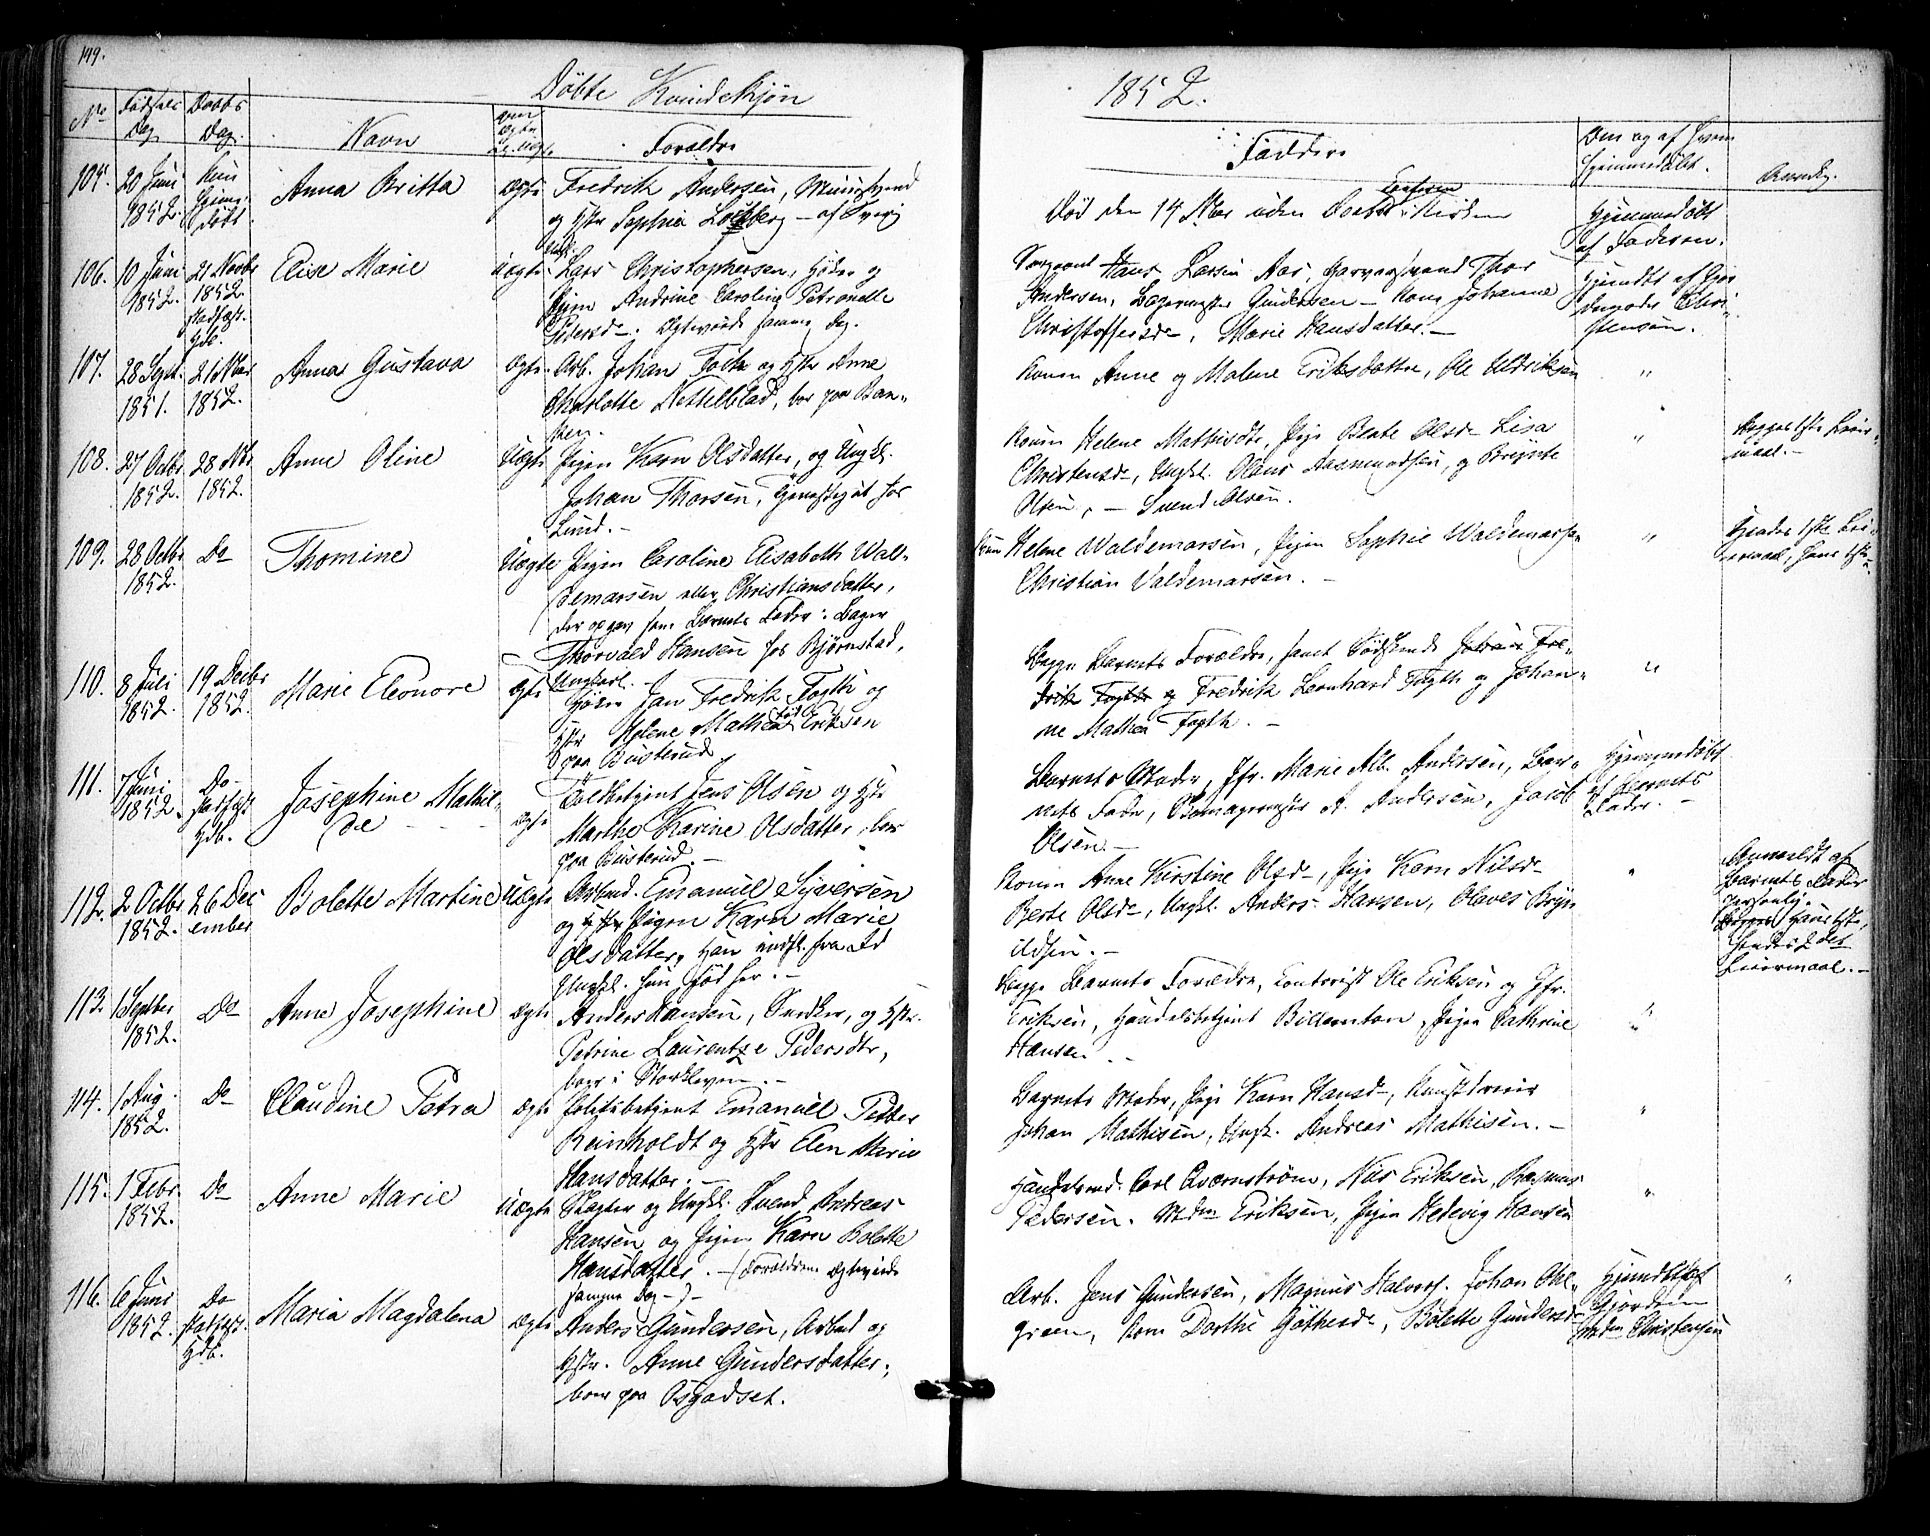 149.
Døbte Kvindekjøn 1852.
No Fødsels Dag Daabs Dag. Navn Om Ægte Forældre Faddere Om og af Hvem Hjemmedøbt. Anmærkn.
105. 20 Juni 1852. Kun Hjemmedøbt Anna Britta Ægte Fredrik Andersen, Muursvend
og Hstr Sophia Lochberg – af Sverig
Død den 14 Nbr uden Daabs i Kirken
Hjemmedøbt
af Faderen.
106. 10 Juni 1852. 21 Novbr 1852 stadfæst. Hdb. Elise Marie Uægte Lars Christophersen, Høker og
Pigen Andrine Caroline Petronelle
Pedersd. Ægteviede samme Dag.
Sergeant Hans Larsen Aas, Garversvend Thor
Andersen, Bagermester Gundersen – Kone Johanne
Christoffersd–, Marie Hansdatter. –
Hjemdbt af Gjor
demoder Chri-
stensen.
107. 28 Sept. 1851. 21 Nbr 1852. Anna Gustava Ægte Arb. Johan Foth og Hstr Anne
Charlotte Nettelblad, bor paa Ban-
ken.
Konen Anne og Malene Eriksdatter, Ole Uldriksen "
108. 27 Octbr 1852. 28 Nbr 1852. Anne Oline Uægte Pigen Karn Olsdatter, og Ungkl.
Johan Thorsen, Tjenestegut hos
Lund. –
Konen Helene Mathisdtr, Pige Beate Olsd– Lisa
Christensd–, Ungkl. Olaus Aasmundsen, og Brynte
Olsen, – Svend Olsen. "
Begges 1ste Leier-
maal. –
109. 28 Octbr 1852. Do Thomine Uægte Pigen Caroline Elisabeth Wal-
demarsen eller Christiansdatter,
der opgav som Barnets Fader: Bager
Thorvald Hansen hos Bjørnstad,
Ungkarl. –
Kone Helene Waldemarsen, Pigen Sophie Waldemarsen
Christian Valdemarsen. – "
Hendes 1ste Lei-
ermaal, hans 1ste
110. 8 Juli 1852. 19 Decbr 1852. Marie Eleonore Ægte Høker Jan Fredrik Fogth og
Hstr Helene Mathea født Eriksen
paa Busterud
Begge Barnets Forældre, samt Sødskende Johan Fre-
drik Fogth og Fredrik Bernhard Fogth og Johan-
ne Mathea Fogth. – "
111. 7 Juni 1852. Do– stadfæst Hdb. Josephine Mathil-
de Ægte Toldbetjent Jens Olsen og Hstr
Marthe Karine Olsdatter, bor
paa Busterud. –
Barnets Moder, Jfr. Marie Alb. Andersen, Bar-
nets Fader, A. Andersen, Jacob
Olsen –
Hjemmedøbt
af Barnets
Fader. –
112. 2 Octbr 1852. 26 December Bolette Martine Uægte Arbmd. Emanuel Syversen
og Pigen Karn Marie
Olsdatter, Han indfl. fra Id
Ungkl. hun født her. –
Konen Anne Kirstine Olsd–, Pige Karn Nilsd–
Berte Olsd–, Ungkl. Anders Hansen, Olaves Bryn
ildsen. – "
Anmeldt af
Barnets Fader
personlig.
Hans 1ste,
hendes 2det
Leiermaal. –
113. 1 Septbr 1852. Do Anne Josephine Ægte Anders Hansen, Snedker, og Hstr.
Petrine Laurentze Pedersdtr,
boer i Storkleven. –
Begge Barnets Forældre, Contorist Ole Eriksen og Jfr.
Eriksen, Handelsbetjent Billernton, Pigen Cathrine
Hansen – "
114. 1 Aug. 1852. Do Claudine Petra Ægte Politibetjent Emanuel Petter
Reinholdt og Hstr Elen Marie
Hansdatter. –
Barnets Moder, Pige Karn Hansd–, Kunstdreier
Johan Mathisen, Ungk. Andreas Mathisen. – "
115. 1 Febr. 1852. Do Anne Marie Uægte Slagter og Ungkl. Svend Andreas
Hansen og Pigen Karn Bolette
Hansdatter. – (Forældrene Ægteviede
samme Dag –) –
Handelsmd. Carl Qværnstrøm, Nils Eriksen, Rasmus
Pedersen. Mdm Eriksen, Pigen Hedevig Hansen "
116. 6 Juni 1852. Do stadfæst. Hdb. Maria Magdalena Ægte Anders Gundersen, Arbmd og
Hstr. Anne Gundersdatter,
boer paa Osgadset.
Arb. Jens Gundersen, Magnus Halvors. Johan Ole-
green, Kone Dorthe Gøthesd–, Bolette Gundersd–
Hjemdbt af
Gjordem
Mdm Christensen
"